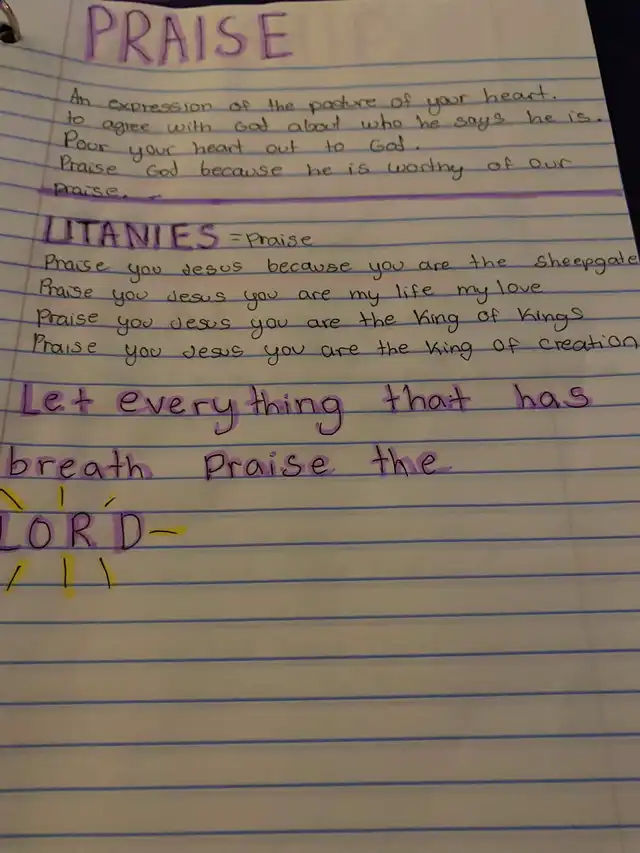 PRAISE
An expression of the pocture of your heart.
to agree with God about who he says he is.
Pour your heart out to God.
Praise God because he is worthy of our
praise.
LITANIES = Praise
Praise you Jesus because you are the Sheepgate
Praise you Jesus you are my life my love
Praise you Jesus you are the King of Kings
Praise you Jesus you are the King of creation
Let everything that has
breath Praise the
LORD